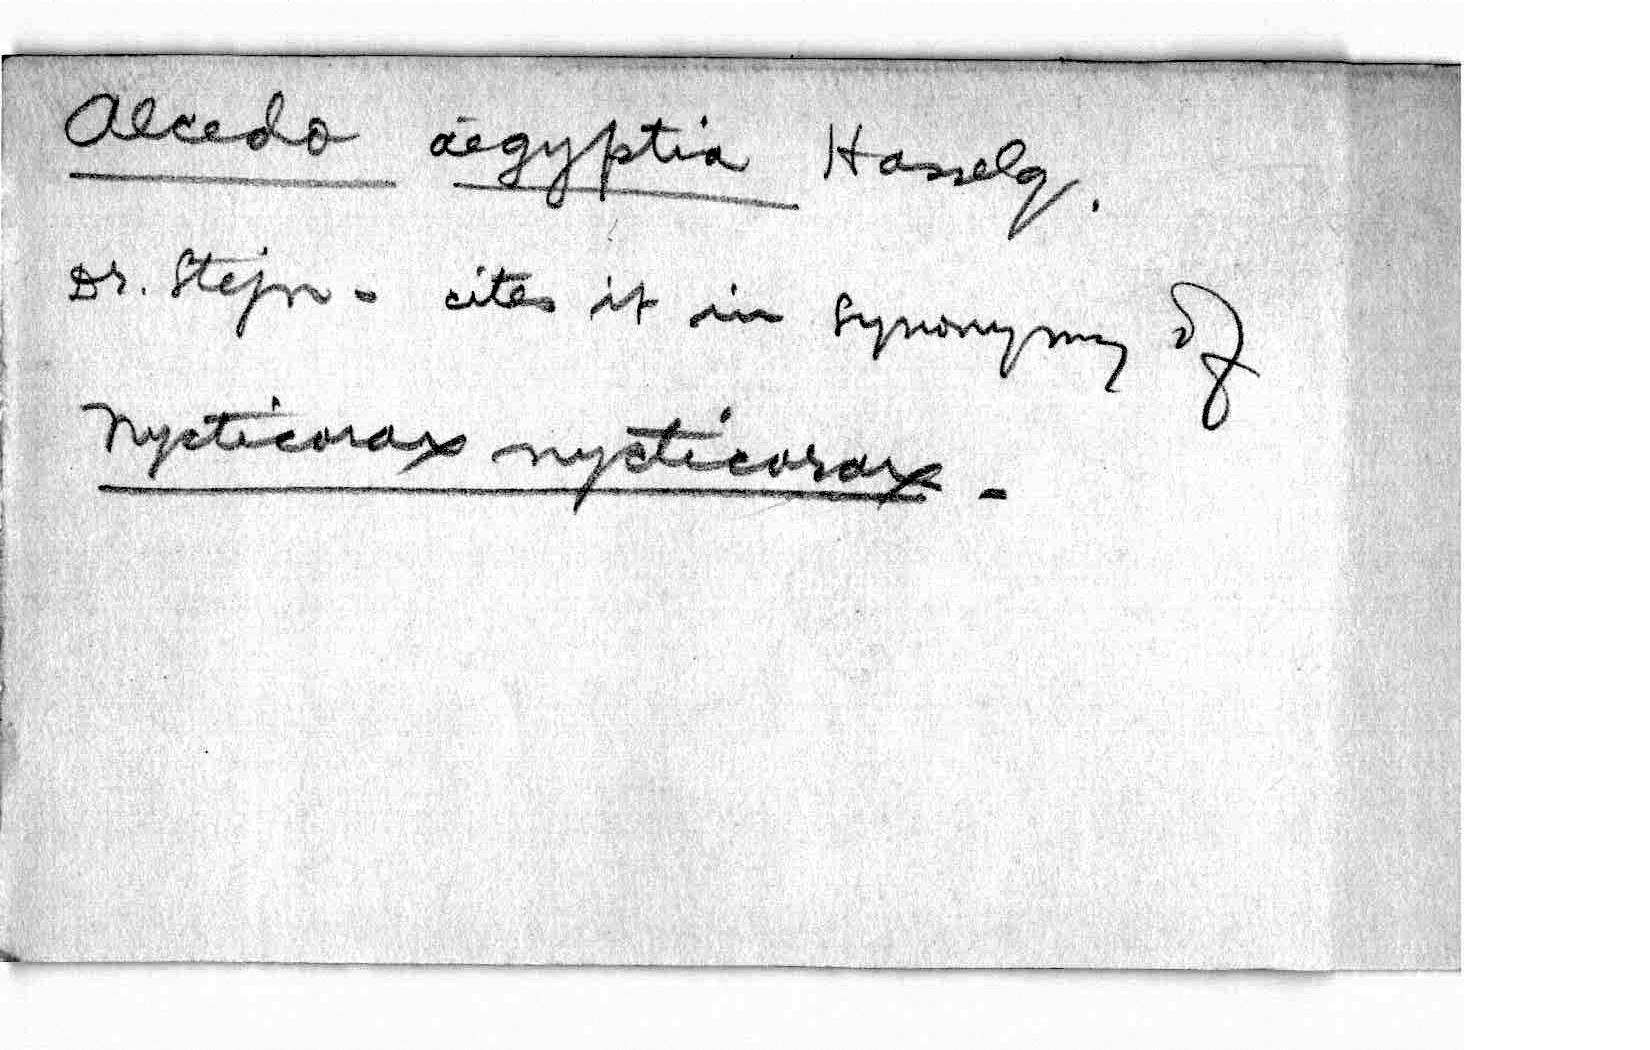 Alcedo aegyptia Hasselq.
Dr. Stejn - cites it in synonymy of
Nycticorax nycticorax -